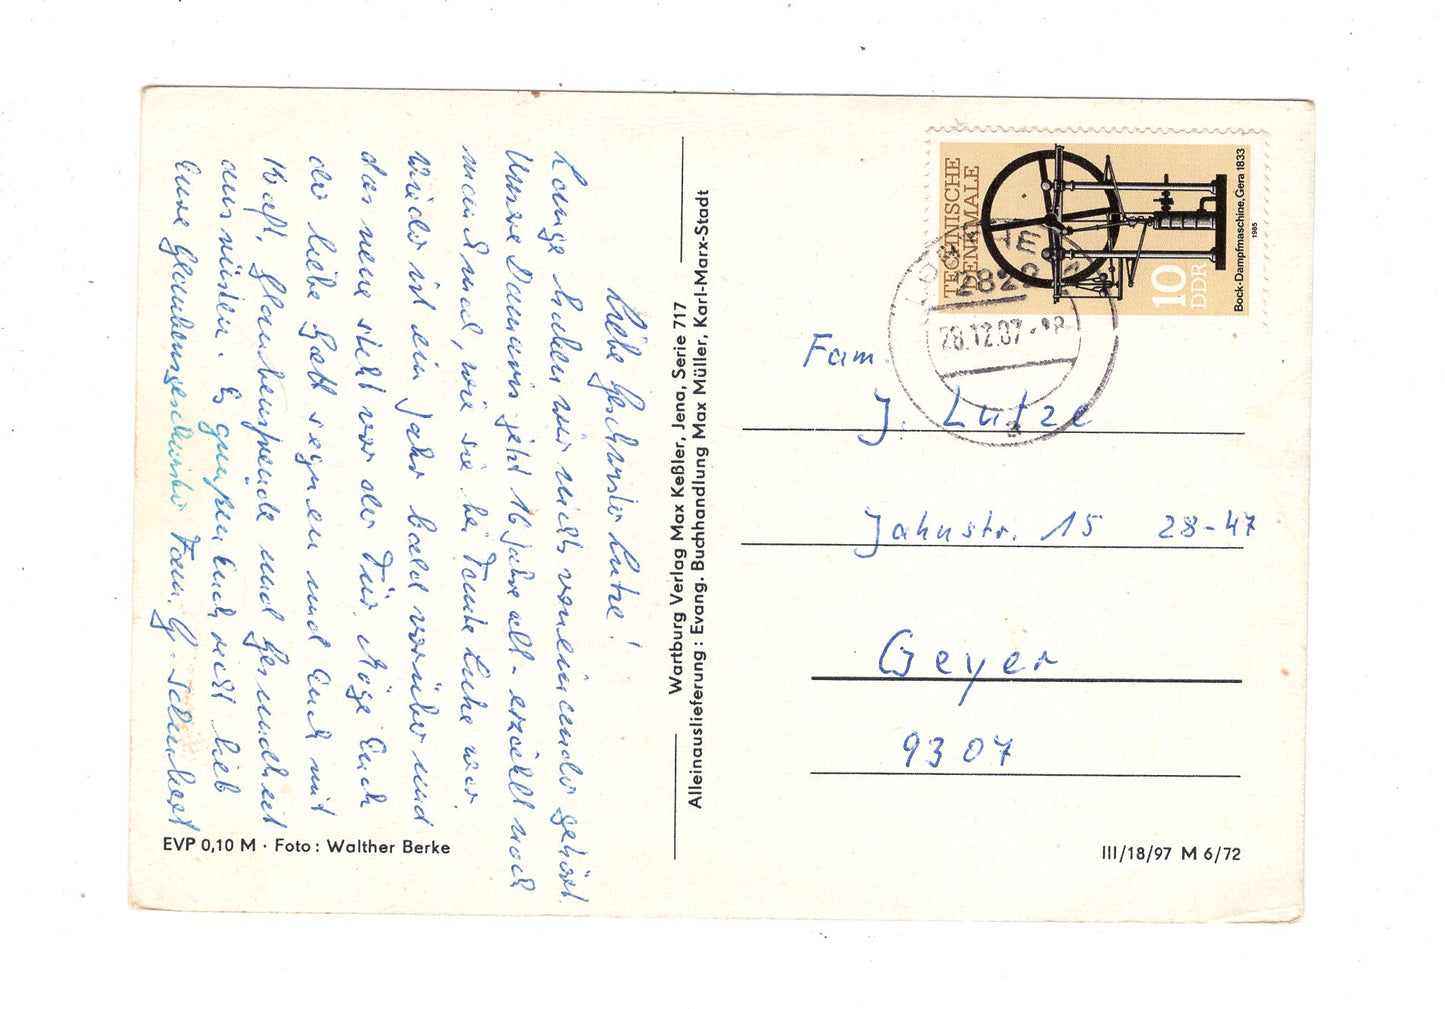 Liebe Geschwister Lutze!
Lange haben wir nichts voneinander gehört.
Unsre Damaris jetzt 16 Jahre alt - erzählt noch
manchmal, wie sie bei Tante Luhe war.
Wieder ist ein Jahr bald vorüber und
das neue steht vor der Tür. Möge Euch
der liebe Gott segnen und Euch mit
Kraft, Glaubensfreude und Gesundheit
ausrüsten. Es grüßen Euch recht lieb
Eure Glaubensgeschwister Fam. G.
EVP 0,10 M · Foto: Walther Berke
Wartburg Verlag Max Keßler, Jena, Serie 717
Alleinauslieferung: Evang. Buchhandlung Max Müller, Karl-Marx-Stadt
TECHNISCHE
DENKMALE
10
DDR
Bock-Dampfmaschine, Gera 1833
1985
282
28.12.87
a
Fam.
J. Lutze
Jahnstr. 15 28-47
Geyer
9307
III/18/97 M 6/72